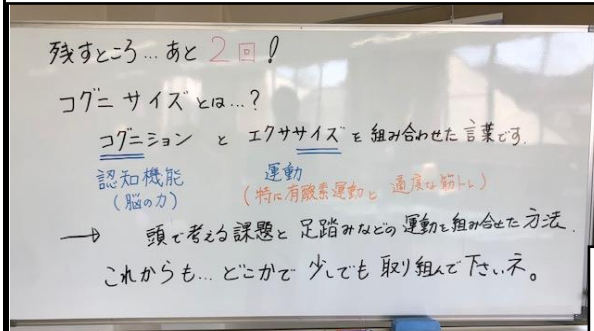 残すところ…あと 2回!
コグニサイズとは…?
コグニション と エクササイズ を 組み合わせた 言葉です.
認知機能 運動
(脳の力) (特に有酸素運動と 適度な筋トレ)
→ 頭で考える課題と 足踏みなどの 運動を組み合せた 方法.
これからも… どこかで 少しでも 取り組んで 下さいネ。